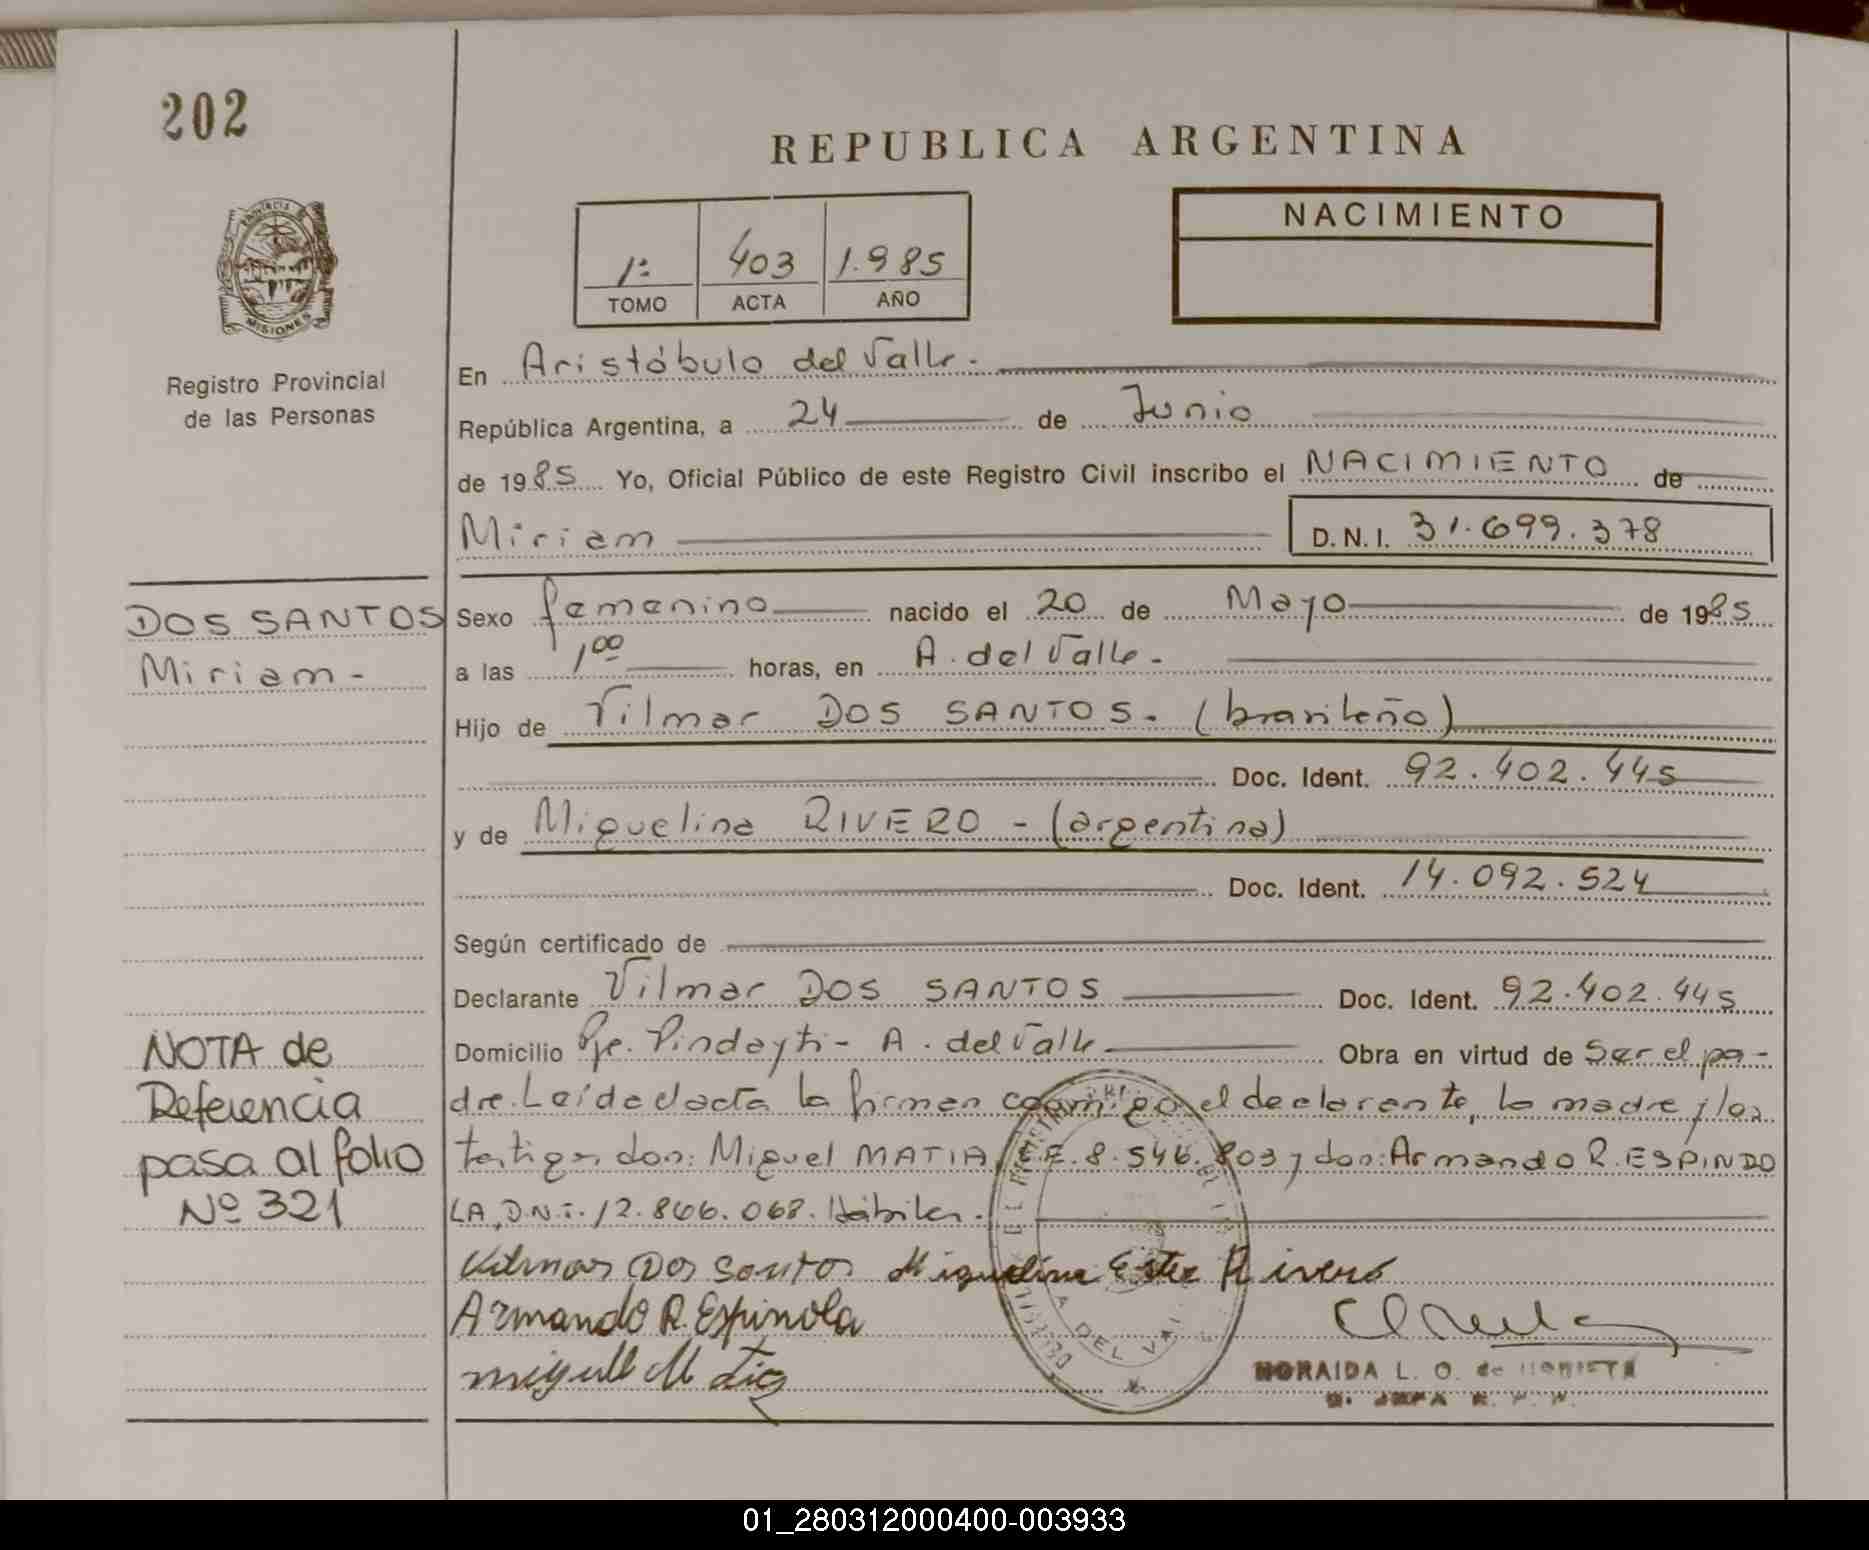 202
REPUBLICA ARGENTINA
PROVINCIA DE
MISIONES
Registro Provincial
de las Personas
1º 403 1.985
TOMO ACTA AÑO
NACIMIENTO
En Aristóbulo del Valle.
República Argentina, a 24 de Junio
de 1985 Yo, Oficial Público de este Registro Civil inscribo el NACIMIENTO de
Miriam D.N.I. 31.699.378
DOS SANTOS
Miriam -
Sexo femenino nacido el 20 de Mayo de 1985
a las 1 00 horas, en A. del Valle -
Hijo de Vilmar DOS SANTOS. (brasileño)
Doc. Ident. 92.402.445
y de Miguelina RIVERO - (argentina)
Doc. Ident. 14.092.524
Según certificado de
Declarante Vilmar DOS SANTOS Doc. Ident. 92.402.445
Domicilio Pje. Pindayti - A. del Valle Obra en virtud de Ser el pa-
dre. Leída el acta la firman conmigo el declarante, la madre y los
testigos don: Miguel MATIA, L.E. 8.546.803 y don: Armando R. ESPINDO
LA, D.N.I. 12.866.068. Hábiles.
NOTA de
Referencia
pasa al folio
Nº 321
Vilmar Dos Santos Miguelina Ester Rivero
Armando R. Espinola
Miguel Matia
DEL VALLE
NORAIDA L. O. de
01_280312000400-003933